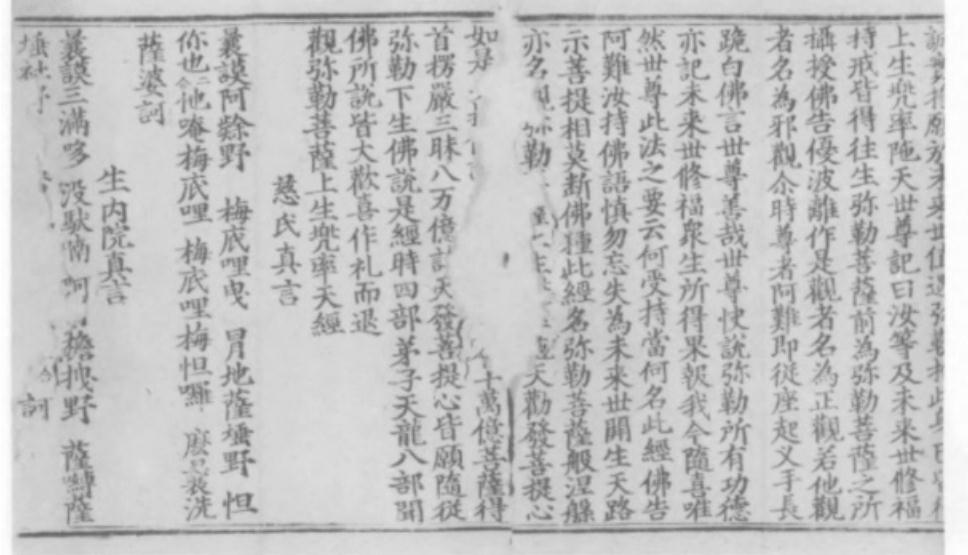 上生兜率陁天世尊記曰汝等及未来世修福
持戒皆得往生弥勒菩薩前為弥勒菩薩之所
攝授佛告優波離作是觀者名為正觀若他觀
者名為邪觀尒時尊者阿難即從座起叉手長
跪白佛言世尊善哉世尊快說弥勒所有功德
亦記未来世修福衆生所得果報我今隨喜唯
然世尊此法之要云何受持當何名此經佛告
阿難汝持佛語慎勿忘失為未来世開生天路
示菩提相莫斷佛種此經名弥勒菩薩般涅槃
亦名觀弥勒 天勸發菩提心
如是 十萬億菩薩得
首楞嚴三昧八万億諸天發菩提心皆願隨從
弥勒下生佛說是經時四部弟子天龍八部聞
佛所說皆大歡喜作礼而退
觀弥勒菩薩上生兜率天經
慈氏真言
曩謨阿 野 梅底哩曳 冐地薩埵野 怛
你也他唵梅底哩 梅底哩梅怛囉
薩婆訶
生内院真言
曩謨三滿哆 没馱喃 阿 野 薩嚩薩
埵 訶